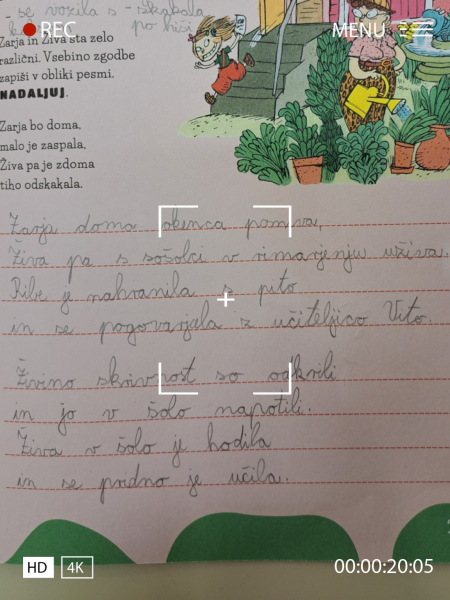 - se vozila s - skakala
po hiši
REC
MENU
Zarja in Živa sta zelo
različni. Vsebino zgodbe
zapiši v obliki pesmi.
NADALJUJ.
Zarja bo doma,
malo je zaspala,
Živa pa je zdoma
tiho odskakala.
Zarja doma okenca pomiva,
Živa pa s sošolci v rimarjenju uživa.
Ribe je nahranila s pito
in se pogovarjala z učiteljico Vito.
Živino skrivnost so odkrili
in jo v šolo napotili.
Živa v šolo je hodila
in se pridno je učila.
HD 4K
00:00:20:05